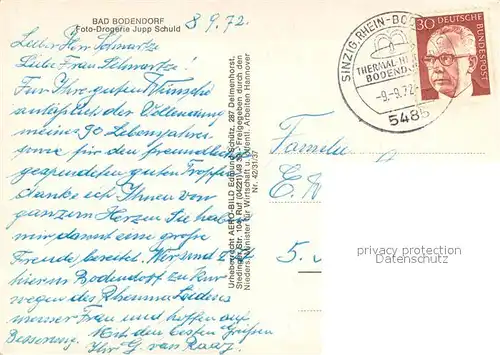 BAD BODENDORF
Foto-Drogerie Jupp Schuld
8 9.72.
Lieber Herr Schwartz
Liebe Frau Schwartz!
Für Ihre guten Wünsche
anläßlich der Vollendung
meines 90 Lebensjahres
sowie für den freundlich
gespendeten guten Tropfen
danke ich Ihnen von
ganzem Herzen Sie haben
mir damit eine große
Freude bereitet. Wir sind z Zt
hier in Bodendorf zu Kur
wegen des Rheumaleidens
meiner Frau und hoffen auf
Besserung. Mit den besten Grüßen
Ihr G. van Raay
Urheberrecht AERO-BILD Edmund Schütz, 287 Delmenhorst,
Stedinger Str. 104, Ruf (04221) 49 39 - Freigegeben durch den
Nieders. Minister für Wirtschaft u. öffentl. Arbeiten Hannover
Nr. 42/31/37
SINZIG, RHEIN-BOD
THERMAL
BODENDO
-9.-9.72
5485
30 DEUTSCHE BUNDESPOST
Familie
5.
privacy protection
Datenschutz